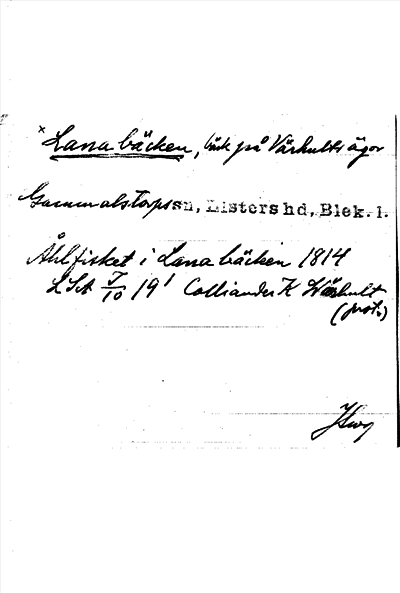 × Lana bäcken, bäck på Värhults ägor
Gammalstorpssn, Listershd, Blek. l.
Åhlfisket i Lana bäcken 1814
LSA 19¹ Colliander K Wärhult
(prot.)